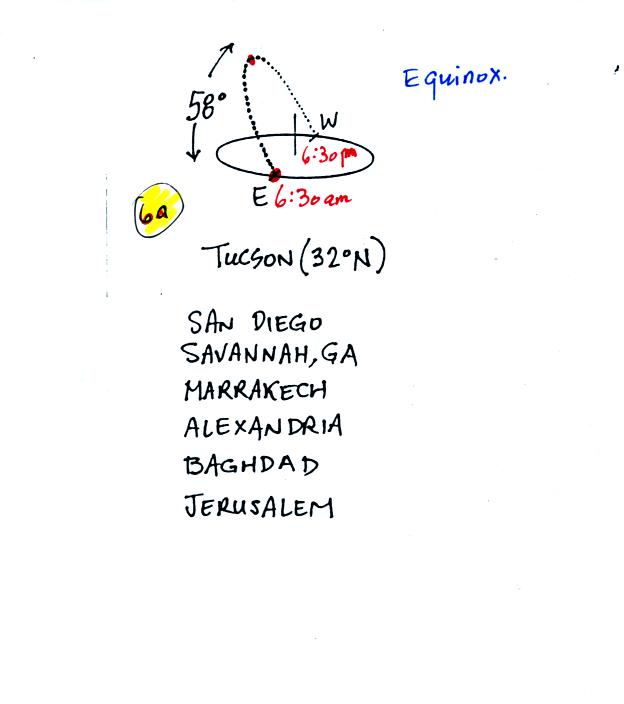 Equinox.
58°
W
6:30pm
E 6:30am
6a
TUCSON (32°N)
SAN DIEGO
SAVANNAH, GA
MARRAKECH
ALEXANDRIA
BAGHDAD
JERUSALEM